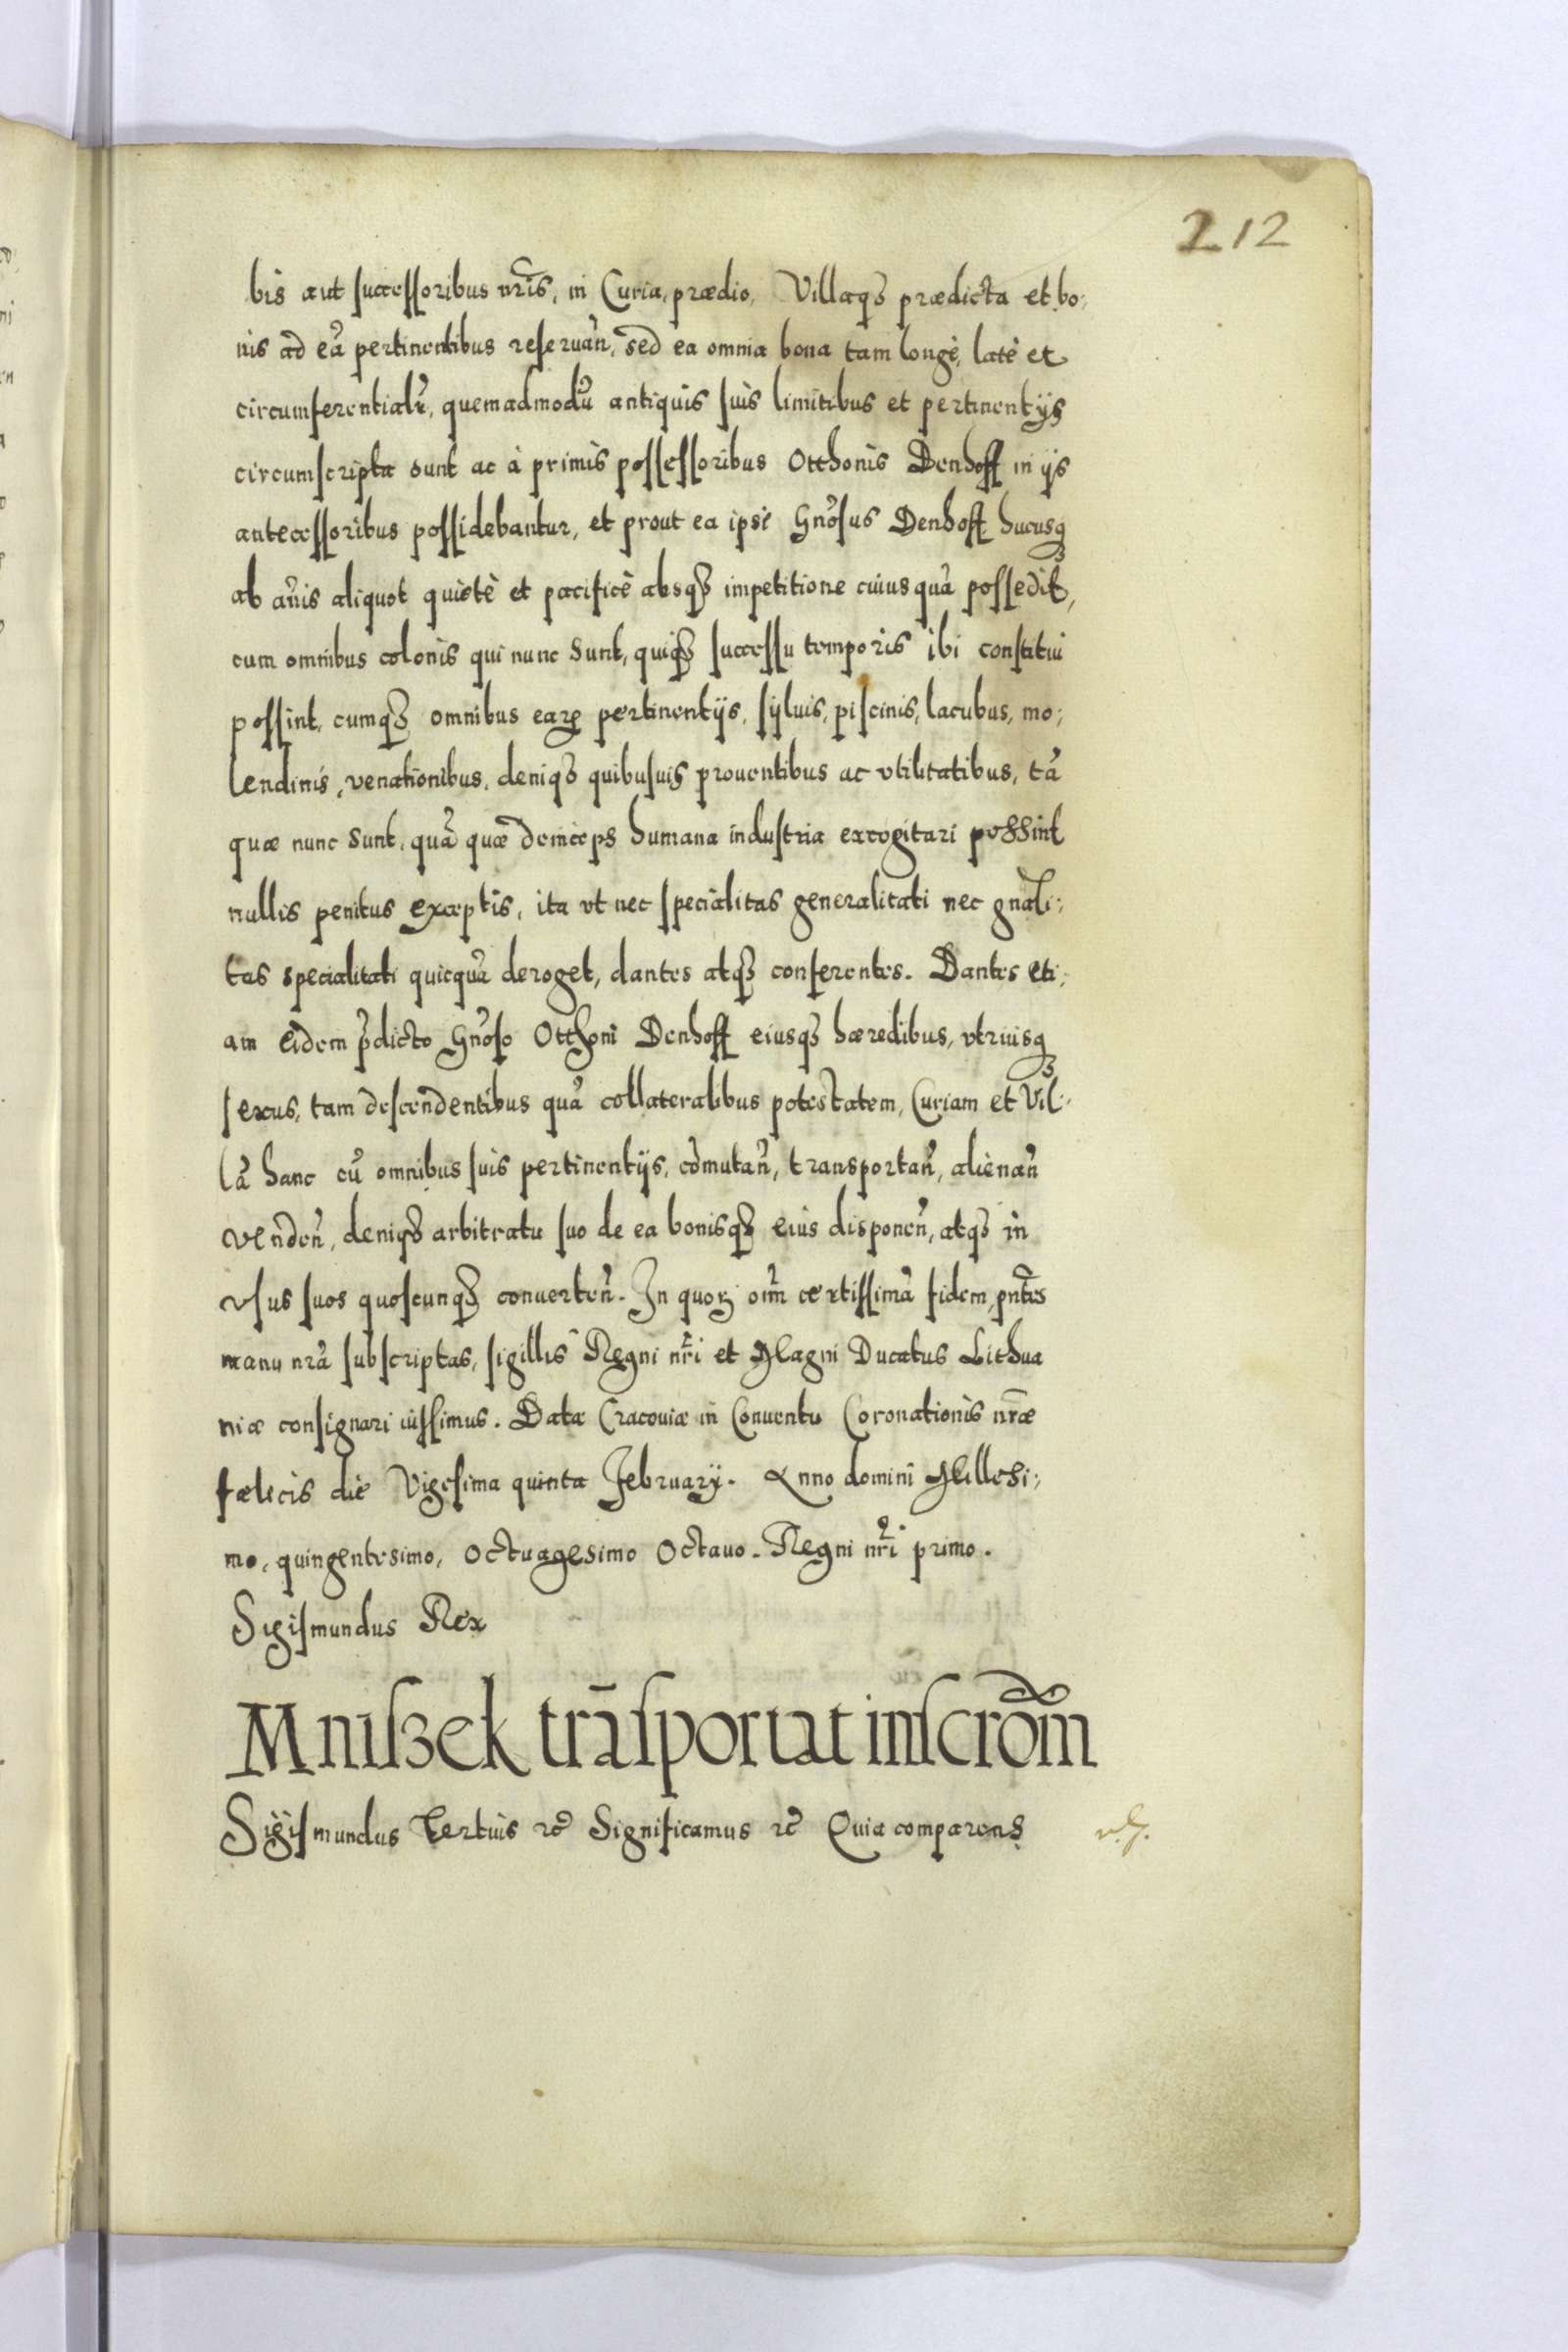 212
bis aut successoribus nr̃is, in Curia, prædio, Villaq₃ prædicta et bo:
nis ad eã pertinentibus reseruañ, sed ea omnia bona tam longè, latè et
circumferentialr̃, quemadmodũ antiquis suis limitibus et pertinentijs
circumscripta sunt ac à primis possessoribus Otthonis Denhoff in ijs
antecessoribus possidebantur, et prout ea ipse Gñosus Denhoff hucusq₃
ab añis aliquot quietè et pacificè absq₃ impetitione cuiusquã possedit,
cum omnibus colonis qui nunc sunt, quiq₃ successu temporis ibi constitui
possint, cumq₃ omnibus earꝝ pertinentijs, syluis, piscinis, lacubus, mo:
lendinis, venationibus, deniq₃ quibusuis prouentibus ac vtilitatibus, tã
quæ nunc sunt, quã quæ deinceps humana industria excogitari possint
nullis penitus exceptis, ita vt nec specialitas generalitati nec gnãli:
tas specialitati quicquã deroget, dantes atq₃ conferentes. Dantes eti:
am eidem p̃dicto Gñoso Otthoni Denhoff eiusq₃ hæredibus, vtriusq₃
sexus, tam descendentibus quã collateralibus potestatem, Curiam et Vil:
lã hanc cũ omnibus suis pertinentijs, cõmutañ, transportañ, alienañ
vendeñ, deniq₃ arbitratu suo de ea bonisq₃ eius disponeñ, atq₃ in
vsus suos quoscunq₃ conuerteñ. In quorꝝ om̃ certissimã fidem, pñtes
manu nrã subscriptas, sigillis Regni nr̃i et Magni Ducatus Lithua
niæ consignari iussimus. Datæ Cracouiæ in Conuentu Coronationis nr̃æ
fælicis die Vigesima quinta February. Anno domini Millesi:
mo, quingentesimo, octuagesimo Octauo. Regni nr̃i primo.
Sigismundus Rex
Mniszek trãsportat inscrõm
Sigismundus Tertius ꝛc̃ Significamus ꝛc̃ Quia comparens